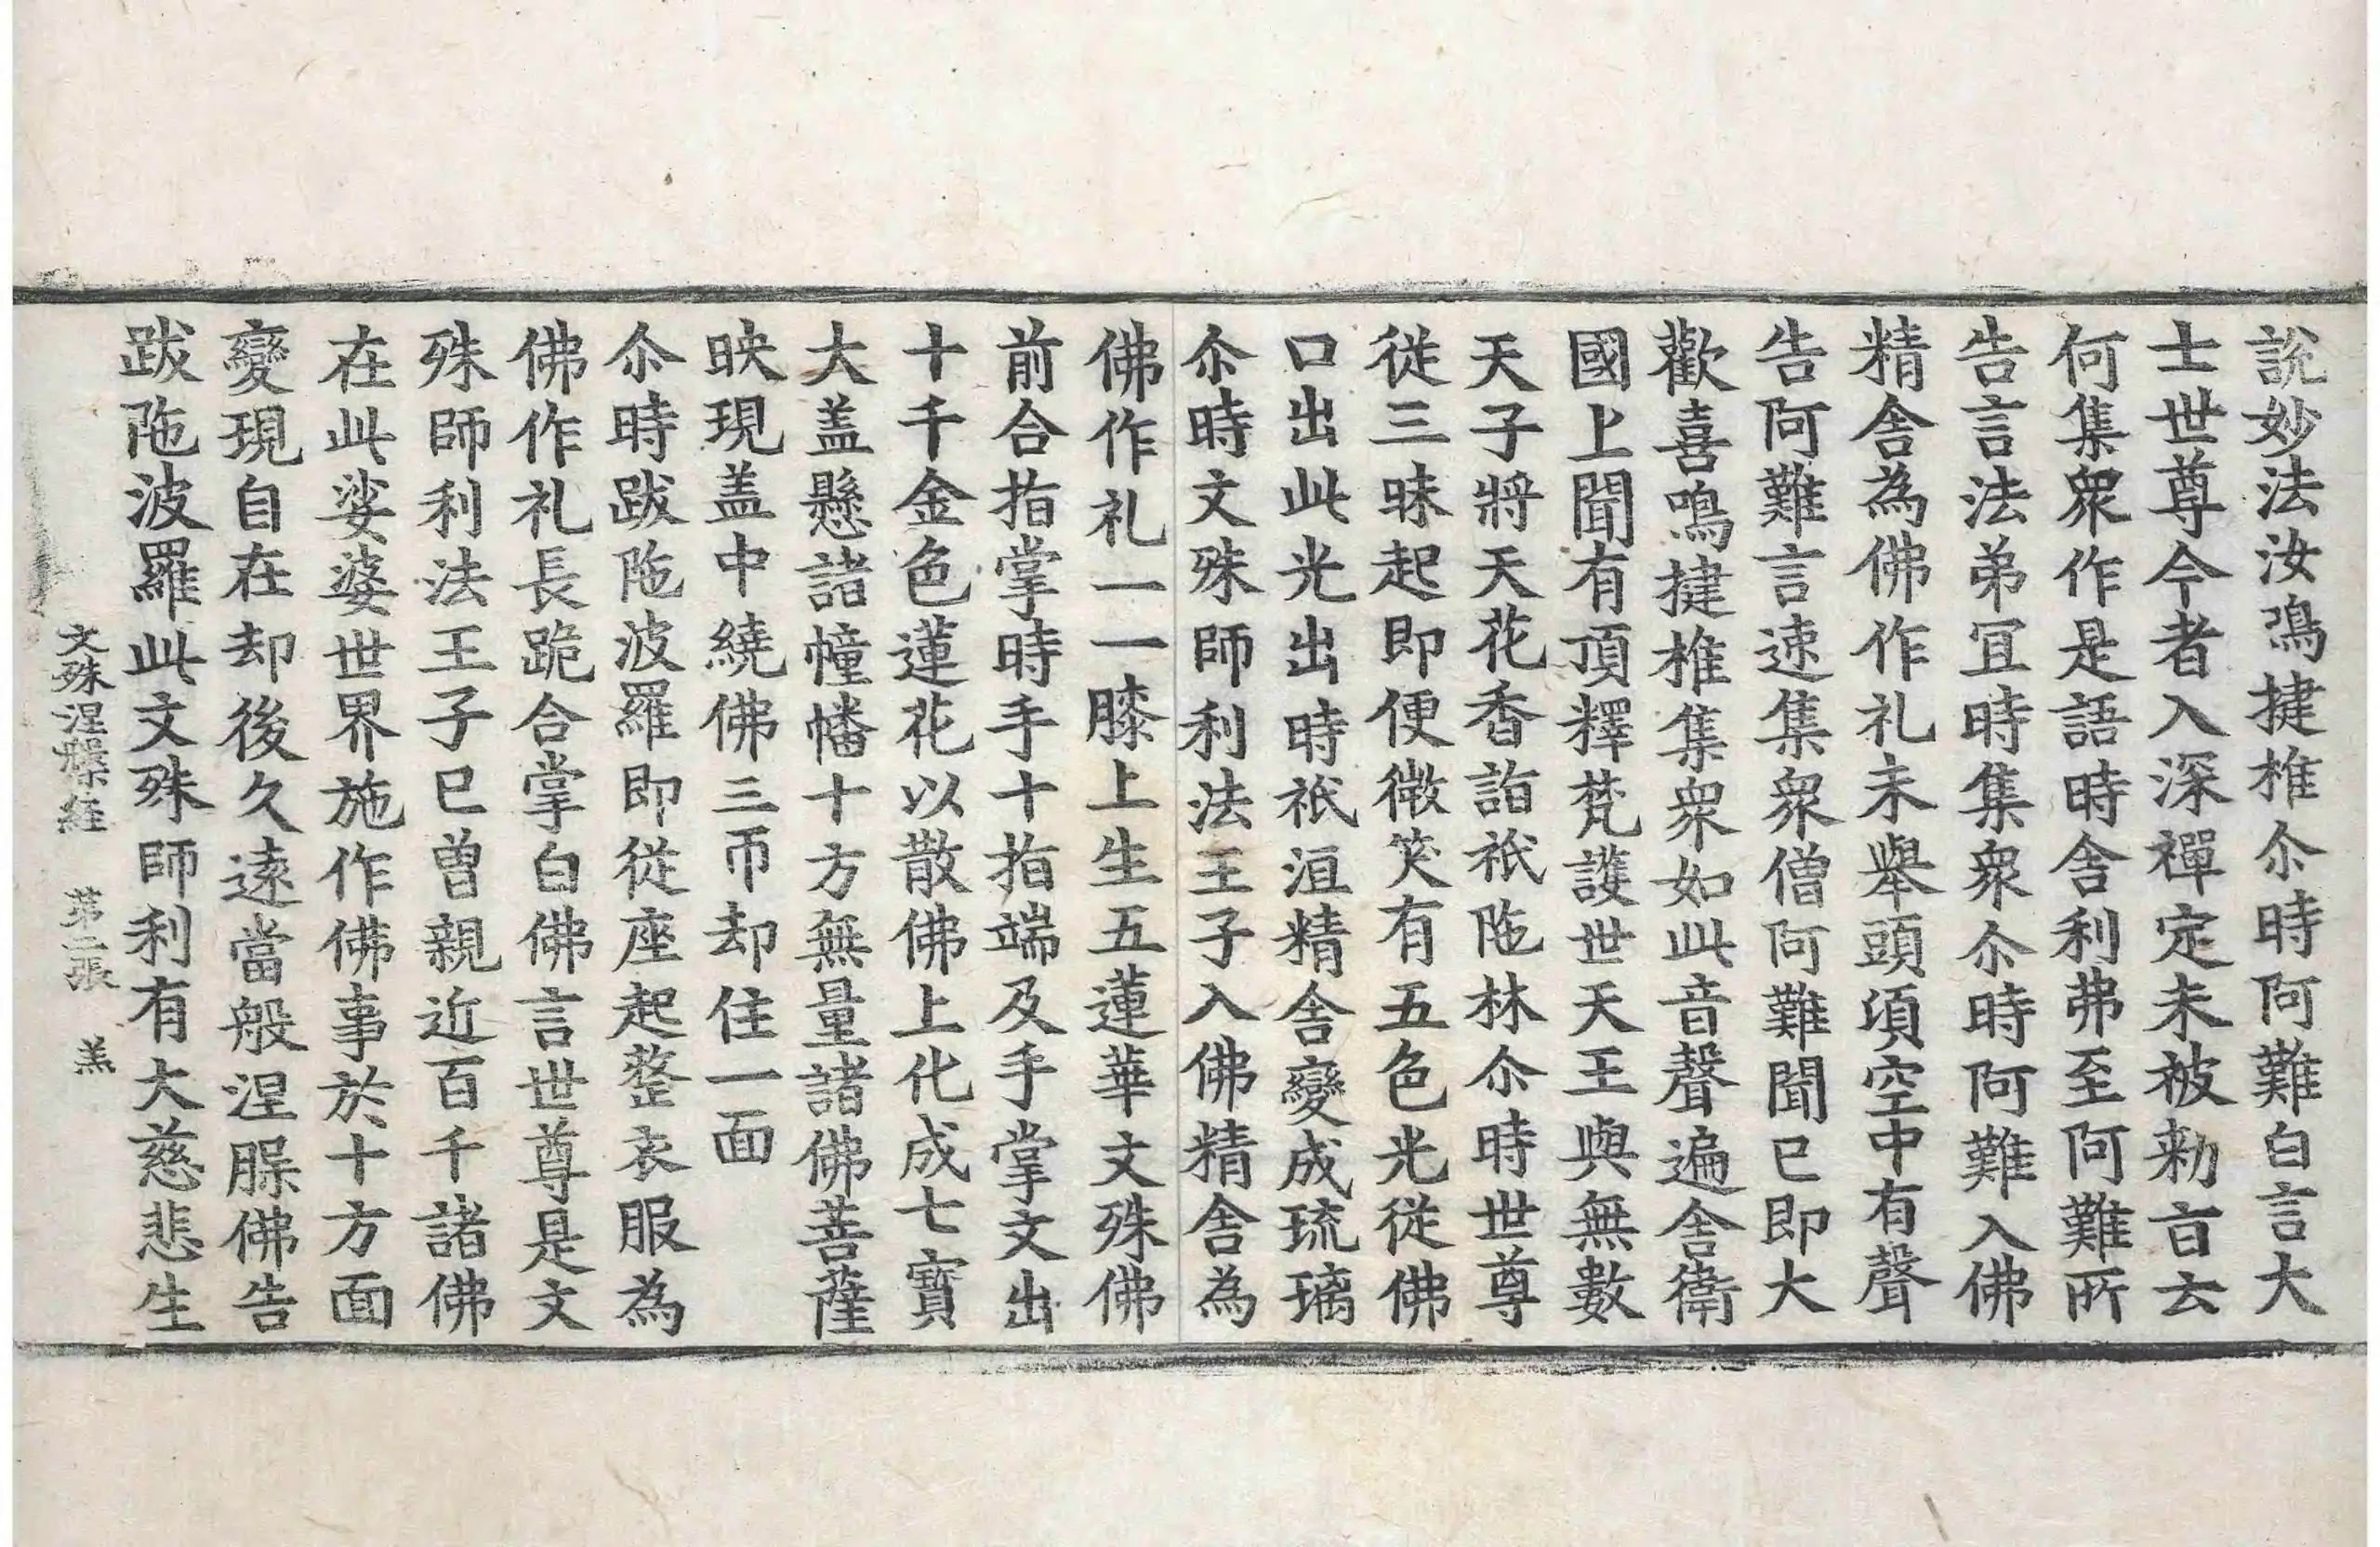 說妙法汝鳴揵椎尒時阿難白言大
士世尊今者入深禪定未被勑㫖云
何集衆作是語時舍利弗至阿難所
告言法弟冝時集衆尒時阿難入佛
精舍為佛作礼未舉頭頃空中有聲
告阿難言速集衆僧阿難聞已即大
歡喜鳴揵椎集衆如此音聲遍舍衛
國上聞有頂釋梵護世天王與無數
天子將天花香詣祇陁林尒時世尊
從三昧起即便微笑有五色光從佛
口出此光出時祇洹精舍變成琉璃
尒時文殊師利法王子入佛精舍為
佛作礼一一膝上生五蓮華文殊佛
前合指掌時手十指端及手掌文出
十千金色蓮花以散佛上化成七寳
大盖懸諸幢幡十方無量諸佛菩薩
映現盖中繞佛三帀却住一面
尒時跋陁波羅即從座起整衣服為
佛作礼長跪合掌白佛言世尊是文
殊師利法王子已曾親近百千諸佛
在此娑婆世界施作佛事於十方面
變現自在却後久遠當般涅槃佛告
跋陁波羅此文殊師利有大慈悲生
文殊涅槃経 苐二張 羔